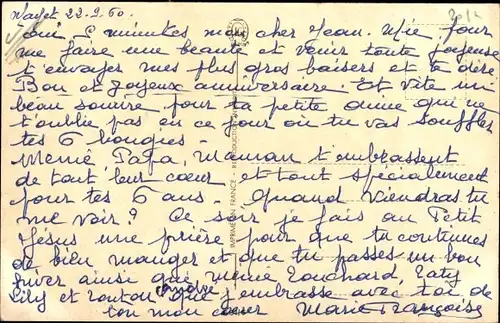 22.2.60.
Oui, 5 minutes mon cher Jean. Mie pour
me faire une beauté et venir toute joyeuse
t'envoyer mes plus gros baisers et te dire
Bon et Joyeux anniversaire. Et vite un
beau sourire pour ta petite amie qui ne
t'oublie pas en ce jour où tu vas souffler
tes 6 bougies.
Mémé, Papa, Maman t'embrassent
de tout leur cœur et tout spécialement
pour tes 6 ans. Quand viendras tu
me voir? Ce soir je fais au Petit
Jésus une prière pour que tu continues
de bien manger et que tu passes un bon
hiver ainsi que mémé Touchard, Taty
Lily et tonton André que j'embrasse avec toi de
ton mon cœur Marie Françoise
IMPRIMÉ EN FRANCE - REPRODUCTION